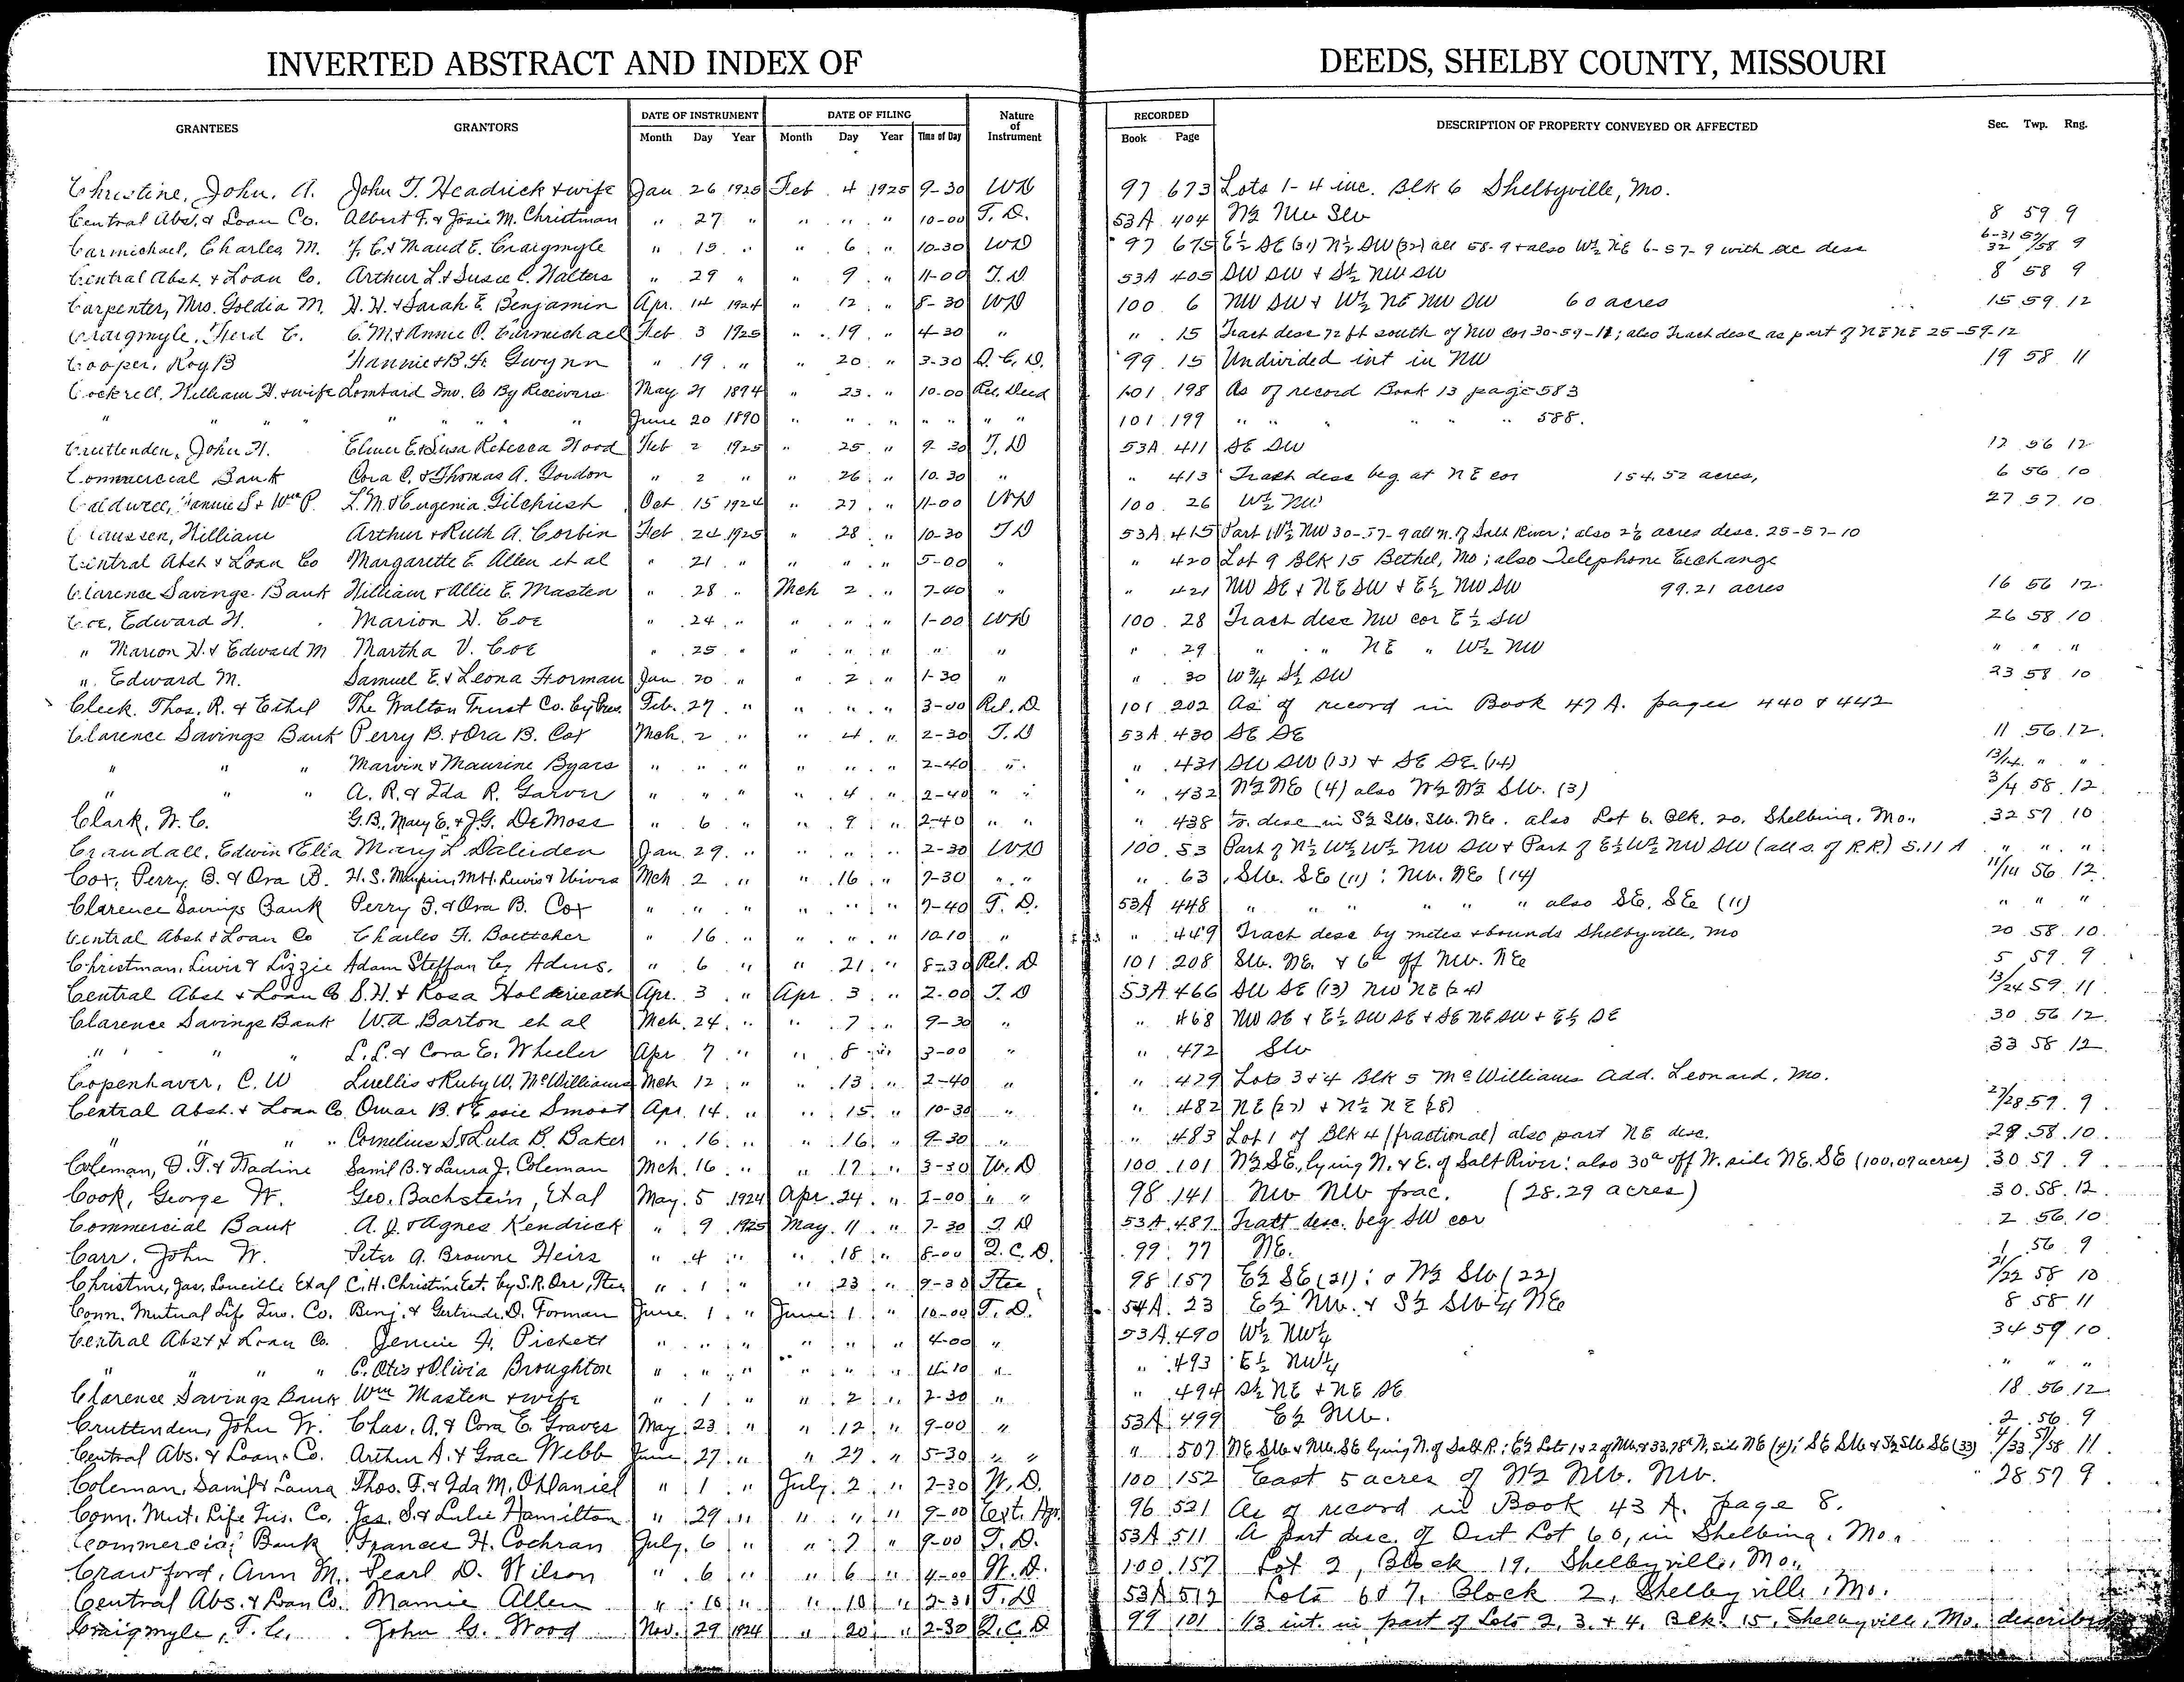 INVERTED ABSTRACT AND INDEX OF DEEDS, SHELBY COUNTY, MISSOURI
GRANTEES GRANTORS DATE OF INSTRUMENT DATE OF FILING Nature of Instrument RECORDED DESCRIPTION OF PROPERTY CONVEYED OR AFFECTED Sec. Twp. Rng.
Month Day Year Month Day Year Time of Day Book Page
Christine, John. A. John T. Headrick & wife Jan 26 1925 Feb 4 1925 9-30 WD 97 673 Lots 1-4 inc. Blk 6 Shelbyville, Mo.
Central Abs. & Loan Co. Albert F. & Josie M. Christman " 27 " " " " 10-00 T. D. 53A 404 N½ NW SW 8 59 9
Carmichael, Charles M. J. C. & Maud E. Craigmyle " 15 " " 6 " 10-30 WD 97 675 E½ SE (31) N½ SW (32) all 58-9 & also W½ NE 6-57-9 with ac desc 6-31 57/58 9
Central Abst. & Loan Co. Arthur L. & Susie C. Walters " 29 " " 9 " 11-00 T. D 53A 405 SW SW & S½ NW SW 8 58 9
Carpenter, Mrs. Goldia M. H. H. & Sarah E. Benjamin Apr. 14 1924 " 12 " 8-30 WD 100 6 NW SW & W½ NE NW SW 60 acres 15 59 12
Craigmyle, Ferd C. C. M. & Annie O. Carmichael Feb 3 1925 " 19 " 4-30 " " 15 Tract desc 72 ft south of NW cor 30-59-11; also Tract desc as part of NE NE 25-59-12
Cooper, Roy B Fannie & B. F. Gwynn " 19 " " 20 " 3-30 Q. C. D. 99 15 Undivided int in NW 19 58 11
Cockrell, William H. & wife Lombard Inv. Co By Receivers May 21 1894 " 23 " 10-00 Rel. Deed 101 198 As of record Book 13 page 583
" " " " " " June 20 1890 " " " " " " 101 199 " " " " " 588.
Cruttenden, John H. Elmer E. & Susa Rebecca Wood Feb 2 1925 " 25 " 9-30 T. D 53A 411 SE SW 12 56 12
Commercial Bank Cora C. & Thomas A. Gordon " 2 " " 26 " 10-30 " " 413 Tract desc beg at NE cor 154.52 acres, 6 56 10
Caldwell, Fannie S & Wm P. L. M. & Eugenia Gilchrist Oct 15 1924 " 27 " 11-00 WD 100 26 W½ NW 27 57 10
Claussen, William Arthur & Ruth A. Corbin Feb 24 1925 " 28 " 10-30 T D 53A 415 Part W½ NW 30-57-9 all N. of Salt River; also 2½ acres desc. 25-57-10
Central Abst & Loan Co Margarette E Allen et al " 21 " " " " 5-00 " " 420 Lot 9 Blk 15 Bethel, Mo; also Telephone Exchange
Clarence Savings Bank William & Allie E. Masten " 28 " Mch 2 " 7-40 " " 421 NW SE & NE SW & E½ NW SW 99.21 acres 16 56 12
Coe, Edward H. Marion H. Coe " 24 " " " " 1-00 WD 100 28 Tract desc NW cor E½ SW 26 58 10
" Marion H. & Edward M Martha V. Coe " 25 " " " " " " " 29 " " NE " W½ NW " " "
" Edward M. Samuel E. & Leona Forman Jan 20 " " 2 " 1-30 " " 30 W¾ S½ SW 23 58 10
Cleek. Thos. R. & Ethel The Walton Trust Co. by Pres. Feb. 27 " " " " 3-00 Rel. D 101 202 As of record in Book 47 A. pages 440 & 442
Clarence Savings Bank Perry B. & Ora B. Cox Mch. 2 " " 4 " 2-30 T. D 53A 430 SE SE 11 56 12.
" " " Marvin & Maurine Byars " " " " " " 2-40 " " 431 SW SW (13) & SE SE (14) 13/14 " "
" " " A. R. & Ida R. Garver " " " " 4 " 2-40 " " " 432 N½ NE (4) also N½ N½ SW. (3) 3/4 58 12
Clark, W. C. G. B., Mary E. & J. G. DeMoss " 6 " " 9 " 2-40 " " " 438 Tr. desc in S½ SW. SW. NE. also Lot 6. Blk. 20. Shelbina, Mo., 32 57 10
Crandall, Edwin & Elia Mary L Daluden Jan. 29. " " " " 2-30 WD 100 53 Part of N½ W½ W½ NW SW & Part of E½ W½ NW SW (all S. of R.R.) 5.11 A " " "
Cox, Perry B. & Ora B. H. S. Maupin, M. H. Lewis & Wives Mch 2 " " 16 " 7-30 " " " 63 SW. SE (11): NW. NE (14) 11/14 56 12.
Clarence Savings Bank Perry B. & Ora B. Cox " " " " " " 7-40 T. D. 53A 448 " " " " " " also SE. SE (11) " " "
Central Abst & Loan Co Charles F. Boettcher " 16 " " " " 10-10 " " 449 Tract desc by metes & bounds Shelbyville, Mo 20 58 10
Christman, Lewis & Lizzie Adam Steffan by Adms. " 6 " " 21 " 8-30 Rel. D 101 208 SW. NE. & 6a off NW. NE 5 59 9
Central Abst & Loan Co S. H. & Rosa Holderieath Apr. 3 " Apr 3 " 2-00 T. D 53A 466 SW SE (13) NW NE (24) 13/24 59 11
Clarence Savings Bank W. A. Barton et al Mch. 24 " " 7 " 9-30 " " 468 NW SE & E½ SW SE & SE NE SW & E½ SE 30 56 12
" " " L. L. & Cora E. Wheeler Apr 7 " " 8 " 3-00 " " 472 SW 33 58 12
Copenhaver, C. W Luellis & Ruby W. McWilliams Mch 12 " " 13 " 2-40 " " 479 Lots 3 & 4 Blk 5 McWilliams Add. Leonard, Mo.
Central Abst. & Loan Co. Omar B. & Essie Smoot Apr. 14 " " 15 " 10-30 " " 482 NE (27) & N½ NE (28) 27/28 59 9
" " " " Cornelius S. & Lula B. Baker " 16 " " 16 " 9-30 " " 483 Lot 1 of Blk 4 (fractional) also part NE desc. 29 58 10
Coleman, O. T. & Nadine Saml B. & Laura J. Coleman Mch. 16 " " 17 " 3-30 W. D 100 101 N½ SE., lying N. & E. of Salt River: also 30a off W. side NE. SE (100.07 acres) 30 57 9
Cook, George W. Geo. Bachstein, Et al May 5 1924 Apr 24 " 1-00 " " 98 141 NW NW frac. (28.29 acres) 30 58 12
Commercial Bank A. J. & Agnes Kendrick " 9 1925 May 11 " 7-30 T D 53A 487 Tratt desc. beg SW cor 2 56 10
Carr, John W. Peter A. Browne Heirs " 4 " " 18 " 8-00 Q. C. D. 99 77 NE. 1 56 9
Christine, Jas. Loucille Et al C. H. Christine Est. by S. R. Orr, Ttee " 1 " " 23 " 9-30 Ttee 98 157 E½ SE (21): & N½ SW (22) 21/22 58 10
Conn. Mutual Life Ins. Co. Benj. & Gertrude D. Forman June 1 " June 1 " 10-00 T. D. 54A 23 E½ NW. & S½ SW¼ NE 8 58 11
Central Abst & Loan Co. Jennie F. Pickett " " " " " " 4-00 " 53A 490 W½ NW¼ 34 59 10
" " " C. Otis & Olivia Broughton " " " " " " 4-10 " " 493 E½ NW¼ " " "
Clarence Savings Bank Wm Masten & wife " 1 " " 2 " 7-30 " " 494 S½ NE & NE SE 18 56 12
Cruttenden, John W. Chas. A. & Cora E. Graves May 23 " " 12 " 9-00 " 53A 499 E½ NW. 2 56 9
Central Abs. & Loan Co. Arthur A. & Grace Webb June 27 " " 27 " 5-30 " " " 507 NE SW & NW. SE lying N. of Salt R.: E½ Lots 1 & 2 of NW. & 33.78a W. side NE (4); SE SW & S½ SW SE (33) 4/33 57/58 11
Coleman, Saml & Laura Thos. F. & Ida M. O'Daniel " 1 " July 2 " 2-30 W. D. 100 152 East 5 acres of N½ NW. NW. 28 57 9
Conn. Mut. Life Ins. Co. Jas. S. & Lulie Hamilton " 29 " " " " 9-00 Ext. Agr. 96 521 As of record in Book 43 A. page 8.
Commercial Bank Frances H. Cochran July 6 " " 7 " 9-00 T. D. 53A 511 A part desc. of Out Lot 60, in Shelbina, Mo.
Crawford, Ann M. Pearl D. Wilson " 6 " " 6 " 4-00 W. D. 100 157 Lot 2, Block 19, Shelbyville, Mo.,
Central Abs. & Loan Co. Mamie Allen " 10 " " 10 " 2-31 T. D 53A 517 Lots 6 & 7, Block 2, Shelbyville, Mo.
Craigmyle, F. C. John G. Wood Nov. 29 1924 " 20 " 2-30 Q. C. D 99 101 1/3 int. in part of Lots 2, 3. & 4, Blk. 15, Shelbyville, Mo. described